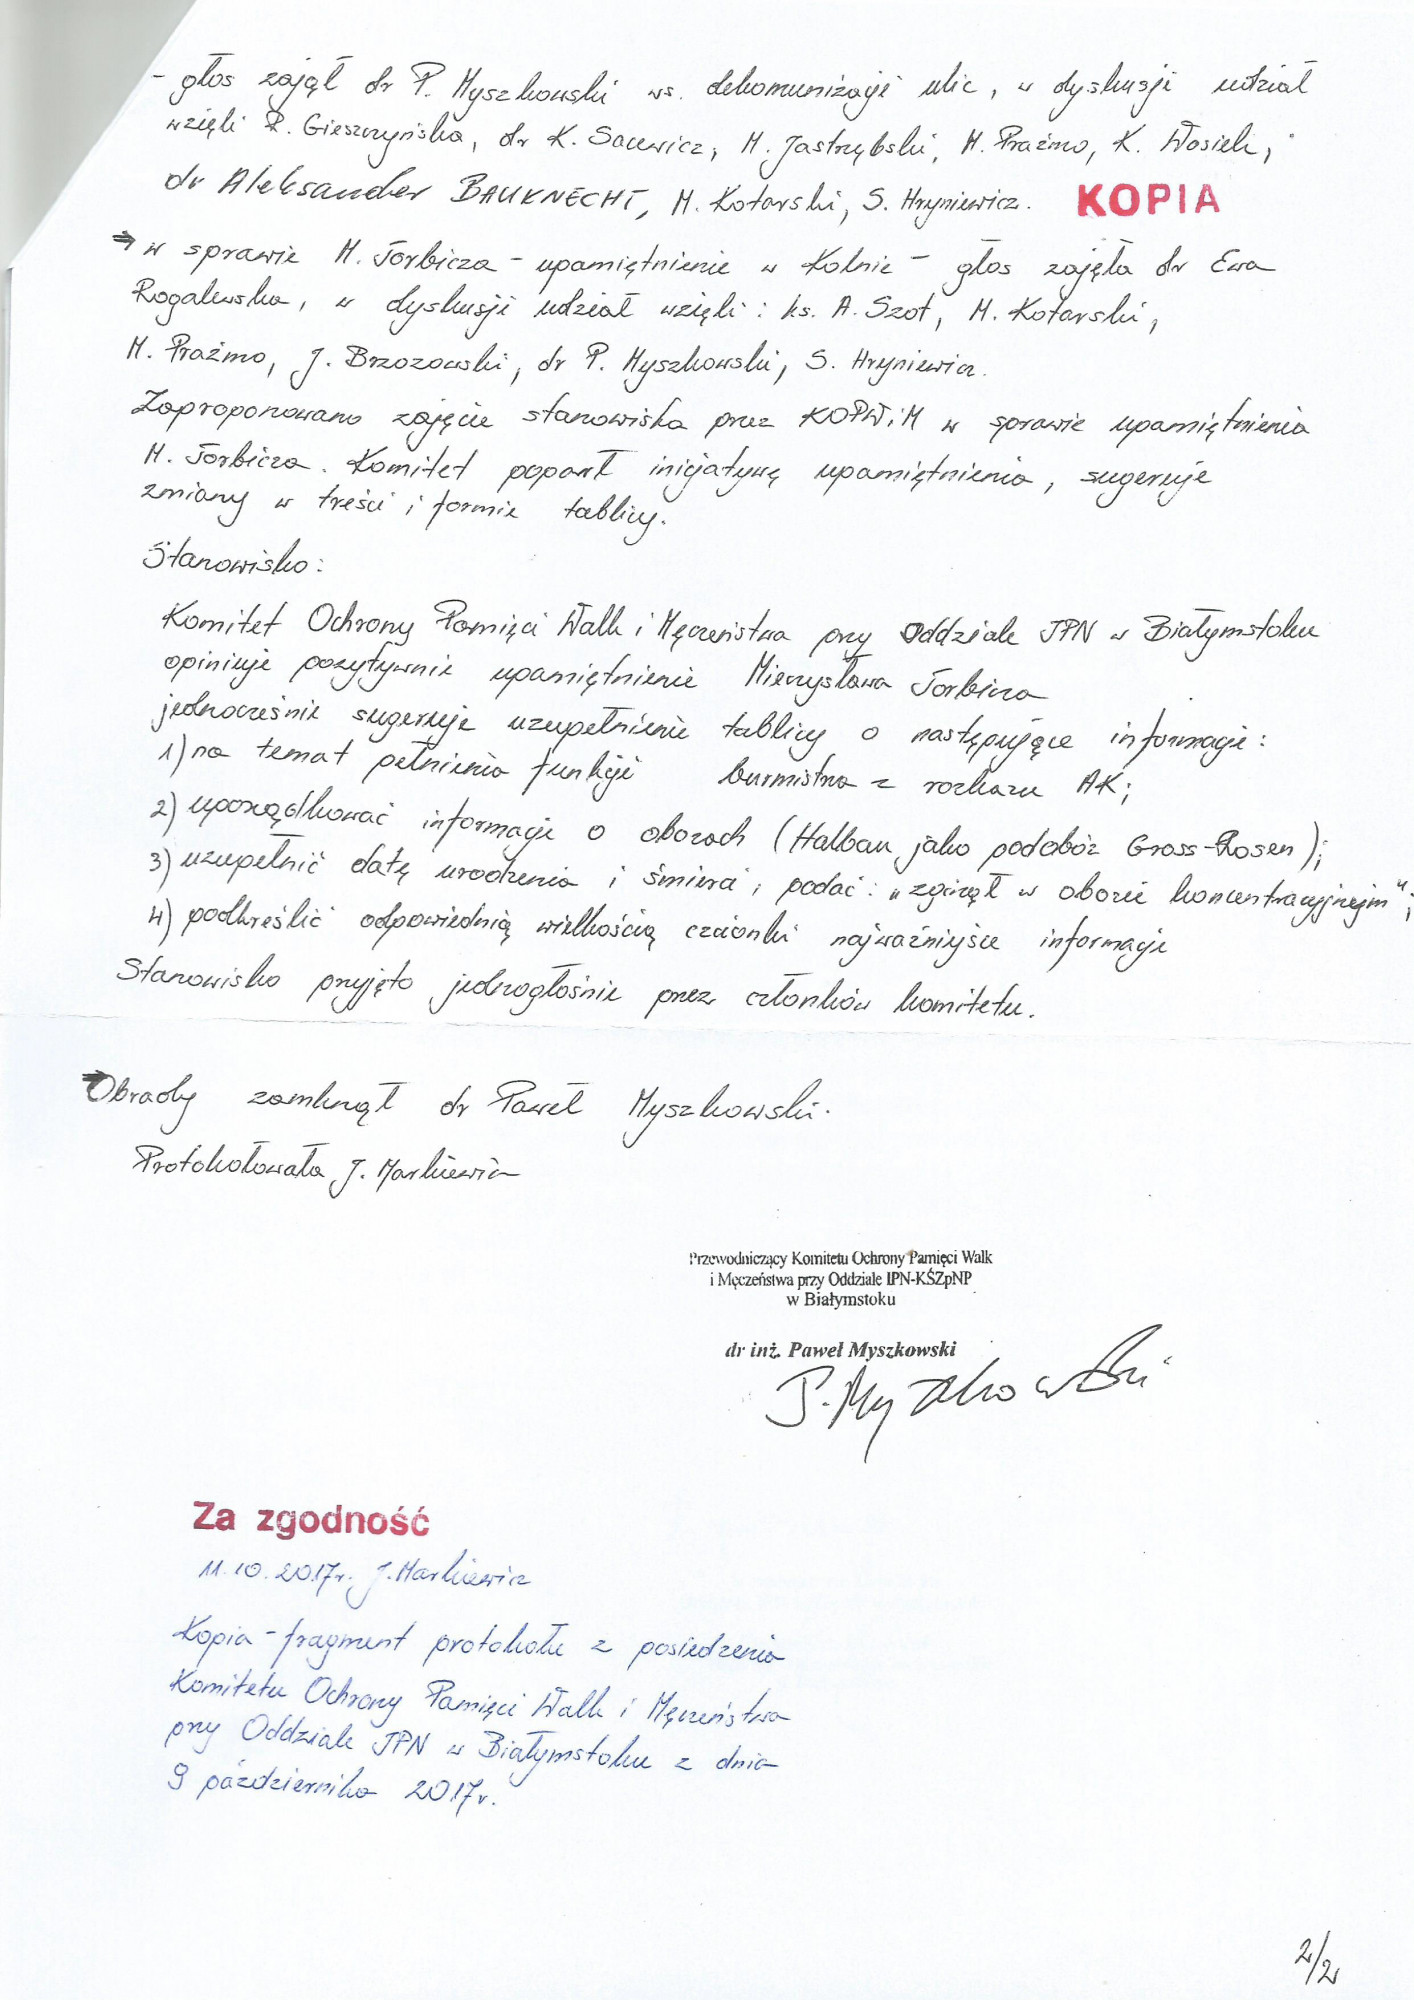 - głos zajął dr P. Myszkowski ws. dekomunizacji ulic, w dyskusji udział
wzięli R. Gieszczyńska, dr K. Sacewicz, M. Jastrzębski, M. Prażmo, K. Wasiek,
dr Aleksander BAUKNECHT, M. Kotarski, S. Hryniewicz.
KOPIA
⇒ w sprawie M. Torbicza - upamiętnienie w Kolnie - głos zajęła dr Ewa
Rogalewska, w dyskusji udział wzięli: ks. A. Szot, M. Kotarski,
M. Prażmo, J. Brzozowski, dr P. Myszkowski, S. Hryniewicz.
Zaproponowano zajęcie stanowiska przez KOPWiM w sprawie upamiętnienia
M. Torbicza. Komitet poparł inicjatywę upamiętnienia, sugeruje
zmiany w treści i formie tablicy.
Stanowisko:
Komitet Ochrony Pamięci Walk i Męczeństwa przy Oddziale IPN w Białymstoku
opiniuje pozytywnie upamiętnienie Mieczysława Torbicza
jednocześnie sugeruje uzupełnienie tablicy o następujące informacje:
1) na temat pełnienia funkcji burmistrza z rozkazu AK;
2) uporządkować informacje o obozach (Halbau jako podobóz Gross-Rosen);
3) uzupełnić datę urodzenia i śmierci, podać: „zginął w obozie koncentracyjnym";
4) podkreślić odpowiednią wielkością czcionki najważniejsze informacje
Stanowisko przyjęto jednogłośnie przez członków komitetu.
⇒ Obrady zamknął dr Paweł Myszkowski.
Protokołowała J. Markiewicz
Przewodniczący Komitetu Ochrony Pamięci Walk
i Męczeństwa przy Oddziale IPN-KŚZpNP
w Białymstoku
dr inż. Paweł Myszkowski
P. Myszkowski
Za zgodność
11.10.2017r. J. Markiewicz
Kopia - fragment protokołu z posiedzenia
Komitetu Ochrony Pamięci Walk i Męczeństwa
przy Oddziale IPN w Białymstoku z dnia
9 października 2017r.
2/2